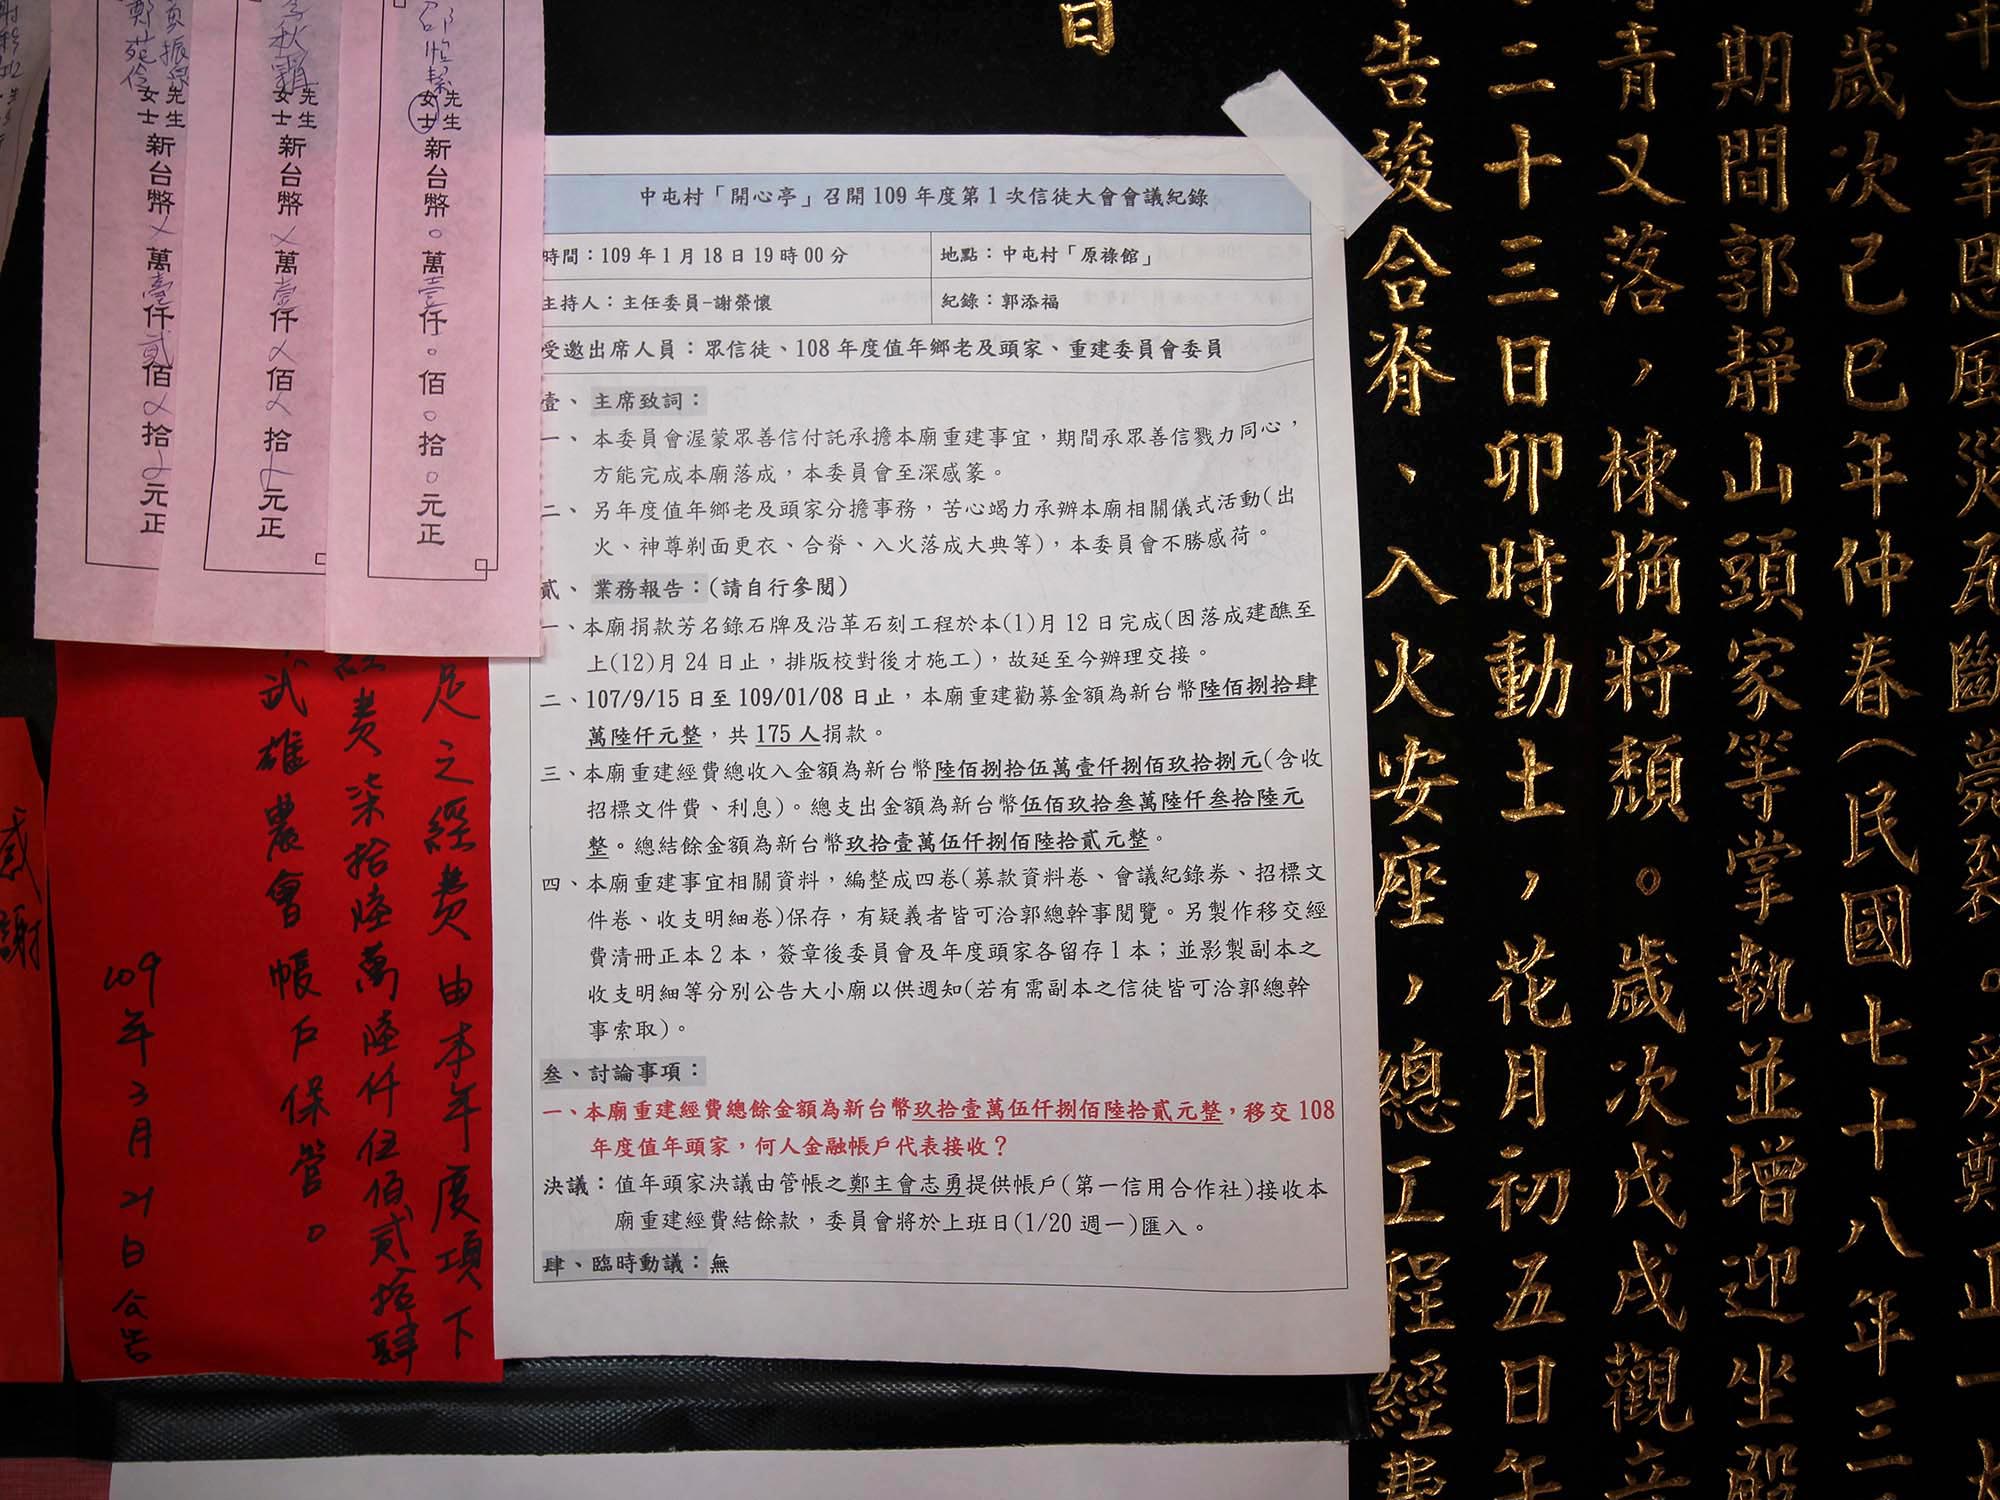 中屯村「開心亭」召開109年度第1次信徒大會會議紀錄
時間：109年1月18日19時00分
地點：中屯村「原祿館」
主持人：主任委員-謝榮懷
紀錄：郭添福
受邀出席人員：眾信徒、108年度值年鄉老及頭家、重建委員會委員
壹、主席致詞：
一、本委員會渥蒙眾善信付託承擔本廟重建事宜，期間承眾善信戮力同心，
方能完成本廟落成，本委員會至深感篆。
二、另年度值年鄉老及頭家分擔事務，苦心竭力承辦本廟相關儀式活動(出
火、神尊剃面更衣、合脊、入火落成大典等)，本委員會不勝感荷。
貳、業務報告：(請自行參閱)
一、本廟捐款芳名錄石牌及沿革石刻工程於本(1)月12日完成(因落成建醮至
上(12)月24日止，排版校對後才施工)，故延至今辦理交接。
二、107/9/15日至109/01/08日止，本廟重建勸募金額為新台幣陸佰捌拾肆
萬陸仟元整，共175人捐款。
三、本廟重建經費總收入金額為新台幣陸佰捌拾伍萬壹仟捌佰玖拾捌元(含收
招標文件費、利息)。總支出金額為新台幣伍佰玖拾叁萬陸仟叁拾陸元
整。總結餘金額為新台幣玖拾壹萬伍仟捌佰陸拾貳元整。
四、本廟重建事宜相關資料，編整成四卷(募款資料卷、會議紀錄券、招標文
件卷、收支明細卷)保存，有疑義者皆可洽郭總幹事閱覽。另製作移交經
費清冊正本2本，簽章後委員會及年度頭家各留存1本；並影製副本之
收支明細等分別公告大小廟以供週知(若有需副本之信徒皆可洽郭總幹
事索取)。
叁、討論事項：
一、本廟重建經費總餘金額為新台幣玖拾壹萬伍仟捌佰陸拾貳元整，移交108
年度值年頭家，何人金融帳戶代表接收？
決議：值年頭家決議由管帳之鄭主會志勇提供帳戶(第一信用合作社)接收本
廟重建經費結餘款，委員會將於上班日(1/20週一)匯入。
肆、臨時動議：無
先生
女士
新台幣。萬壹仟。佰。拾。元正
李秋霜
先生
女士
新台幣 萬壹仟 佰 拾 元正
鄭苑伶
先生
女士
新台幣 萬壹仟貳佰 拾 元正
足之經費由本年度項下
經費柒拾陸萬陸仟伍佰貳拾肆
武雄農會帳戶保管。
109年3月21日公告
感謝
年)韋恩風災瓦斷甍裂。癸鄭正一
歲次己巳年仲春(民國七十八年三
期間郭靜山頭家等掌執並增迎坐殿
青又落，棟桷將頹。歲次戊戌觀音
二十三日卯時動土，花月初五日午
告竣合脊、入火安座，總工程經費
日